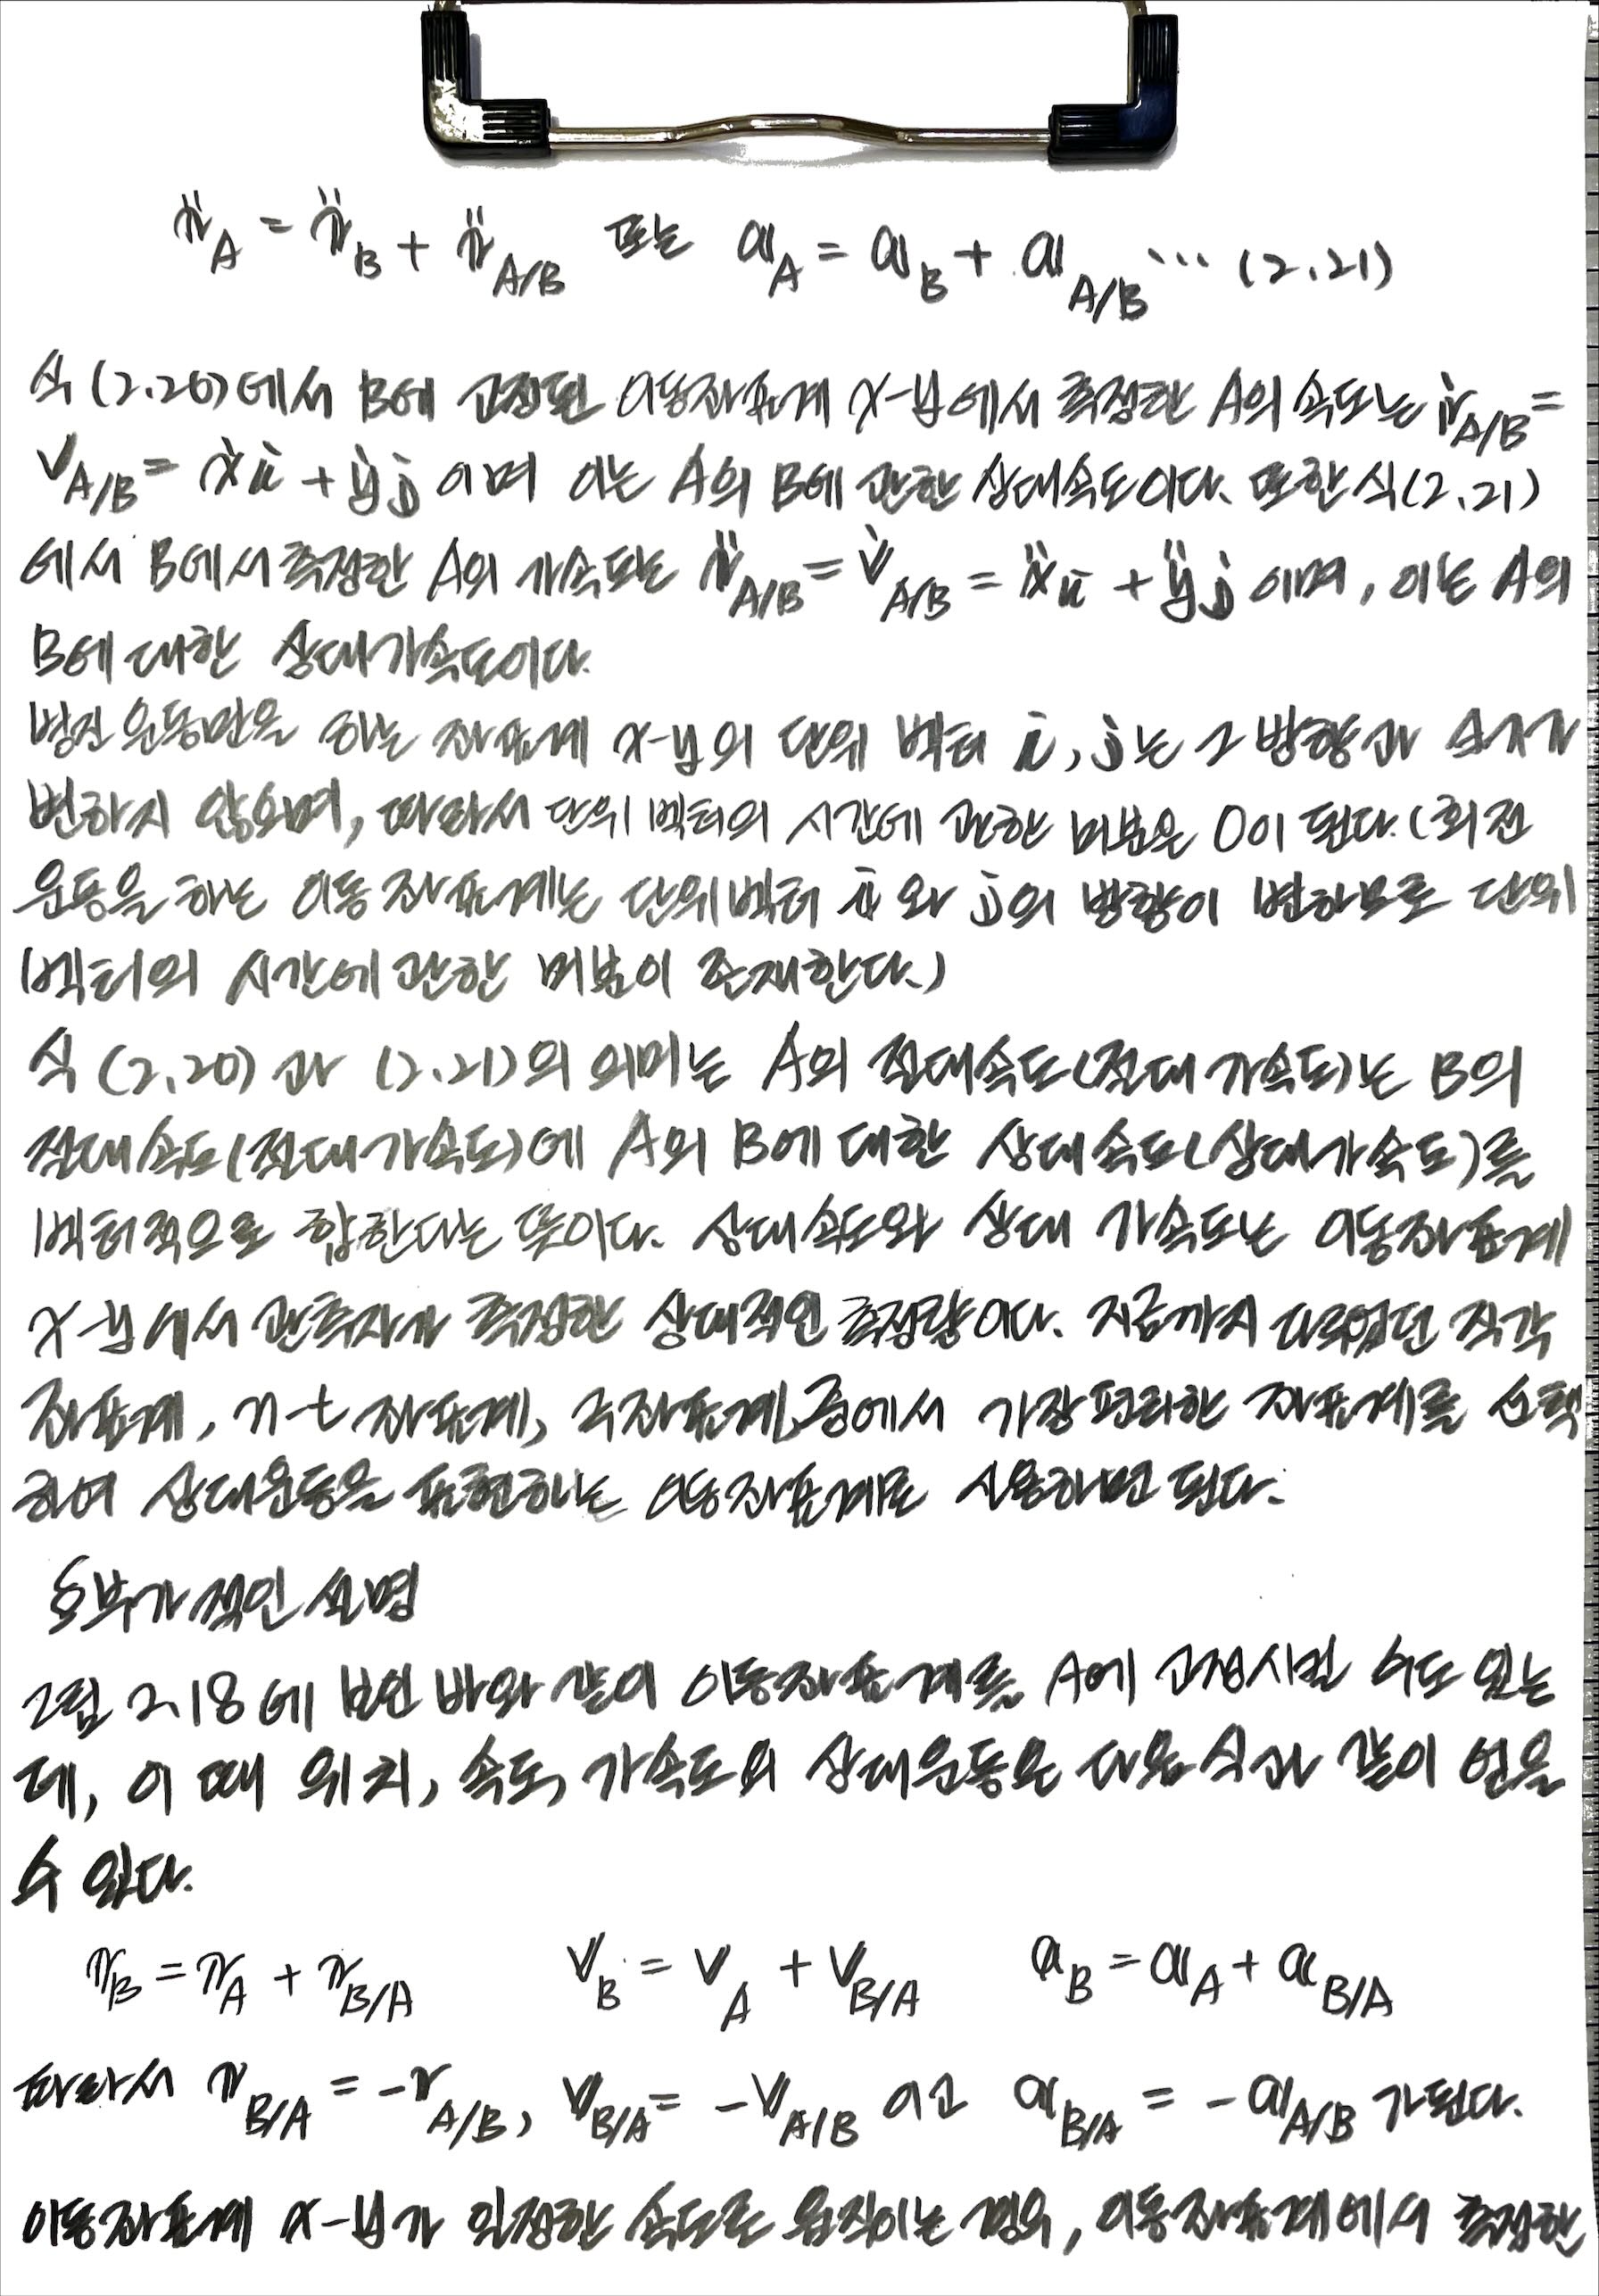 r̈_A = r̈_B + r̈_A/B 또는 a_A = a_B + a_A/B ··· (2.21)
식 (2.20)에서 B에 고정된 이동좌표계 x-y에서 측정한 A의 속도는 ṙ_A/B =
v_A/B = ẋi + ẏj 이며 이는 A의 B에 관한 상대속도이다. 또한 식(2.21)
에서 B에서 측정한 A의 가속도는 r̈_A/B = v̇_A/B = ẍi + ÿj 이며, 이는 A의
B에 대한 상대가속도이다.
병진 운동만을 하는 좌표계 x-y의 단위 벡터 i, j는 그 방향과 크기가
변하지 않으며, 따라서 단위 벡터의 시간에 관한 미분은 0이 된다. (회전
운동을 하는 이동 좌표계는 단위벡터 i 와 j의 방향이 변하므로 단위
벡터의 시간에 관한 미분이 존재한다.)
식 (2.20) 과 (2.21)의 의미는 A의 절대속도(절대 가속도)는 B의
절대속도(절대가속도)에 A의 B에 대한 상대속도(상대가속도)를
벡터적으로 합한다는 뜻이다. 상대속도와 상대 가속도는 이동좌표계
x-y에서 관측자가 측정한 상대적인 측정량이다. 지금까지 다루었던 직각
좌표계, n-t 좌표계, 극좌표계 중에서 가장 편리한 좌표계를 선택
하여 상대운동을 표현하는 이동좌표계로 사용하면 된다.
부가적인 설명
그림 2.18에 보인 바와 같이 이동좌표계를 A에 고정시킬 수도 있는
데, 이 때 위치, 속도, 가속도의 상대운동은 다음 식과 같이 얻을
수 있다.
r_B = r_A + r_B/A v_B = v_A + v_B/A a_B = a_A + a_B/A
따라서 r_B/A = -r_A/B, v_B/A = -v_A/B 이고 a_B/A = -a_A/B 가 된다.
이동좌표계 x-y가 일정한 속도로 움직이는 경우, 이동좌표계에서 측정한